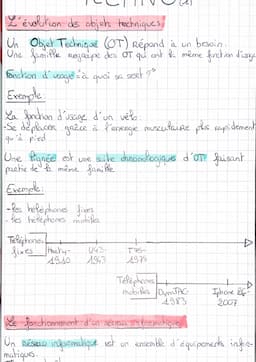 L'évolution des objets techniques.
Un Objet Technique (OT) Répond à un besoin.
Une famille regroupe des OT qui ont la même fonction d'usage
Fonction d'usage = à quoi sa sert ?
Exemple
La fonction d'usage d'un vélo.
-Se déplacer grâce à l'énergie musculaire plus rapidement
qu'à pied
Une lignée est une suite chronologique d'OT faisant
partie de la même famille
Exemple:
- Les téléphones fixes
- Les téléphones mobiles
Téléphones
fixes
U43
1910 1943
Téléphones
mobiles DynaTAC Iphone
1983 2007
Le fonctionnement d'un réseau informatique
Un réseau informatique est un ensemble d'équipements infor-
matiques.